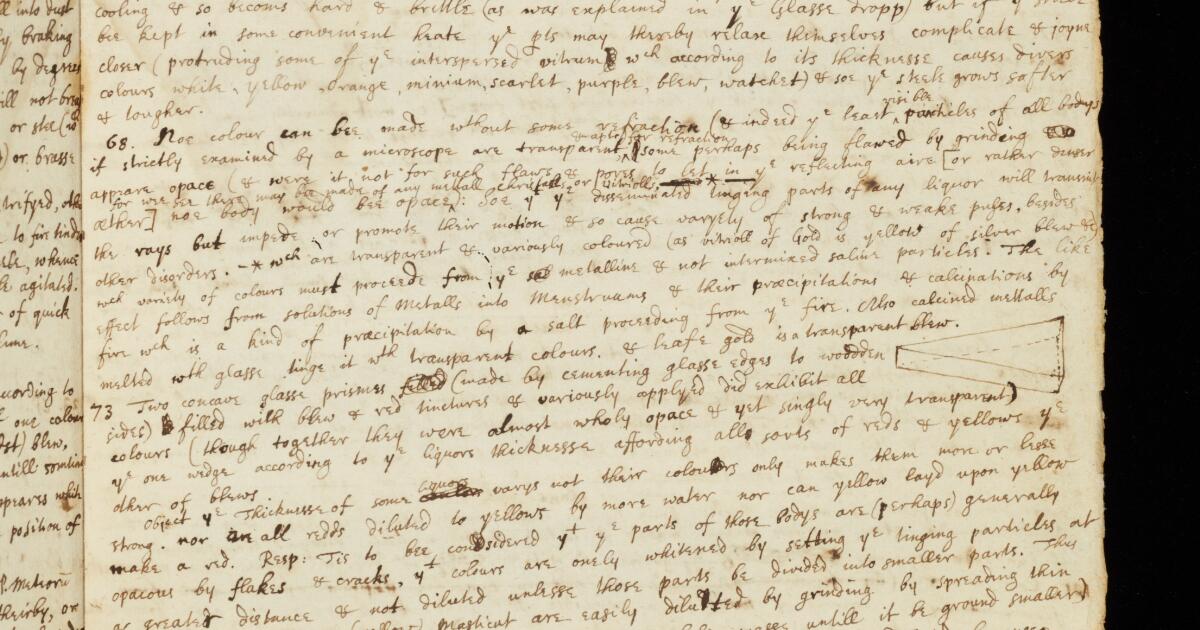 cooling & so becoms hard & brittle (as was explained in yᵉ Glasse dropp) but if yᵉ
bee kept in some convenient heate yᵉ pts may thereby relaxe themselves complicate & joyne
closer (protruding some of yᵉ interspersed vitrum wᶜʰ according to its thicknesse causes divers
colours white, yellow orange, minium, scarlet, purple, blew, watchet) & soe yᵉ steele grows softer
& tougher.
68. Noe colour can bee made wthout some refraction (& indeed yᵉ least visible particles of all bodys
if strictly examined by a microscope are transparent some perhaps being flawed by grinding
made for refraction
appeare opace (& were it not for such flaws & pores to let in yᵉ reflecting aire [or rather denser
for wee see there may bee made of any metall or vitrioll
æther] noe body would bee opace): Soe yᵗ yᵉ disseminated tinging parts of any liquor will transmit
the rays but impede or promote their motion & so cause varyety of strong & weake pulses, besides
other disorders. -* wᶜʰ are transparent & variously coloured (as vitroll of Gold is yellow of silver blew &c)
wᶜʰ variety of colours must proceede from yᵉ metalline & not intermixed saline particles. The like
effect follows from solutions of Metalls into Menstruums & their præcipitations & calcinations by
fire wᶜʰ is a kind of præcipitation by a salt proceeding from yᵉ fire. Also calcined mettalls
melted wth glasse tinge it wth transparent colours. & leafe gold is a transparent blew.
73 Two concave glasse prismes filled (made by cementing glasse edges to woodden
sides) filled with blew & red tinctures & variously applyed did exhibit all
colours (though together they were almost wholy opace & yet singly very transparent)
yᵉ one wedge according to yᵉ liquors thicknesse affording all sorts of reds & yellows yᵉ
other of blews.
object yᵉ Thicknesse of some liquors varys not their colours only makes them more or lesse
strong. nor are all redds diluted to yellows by more water nor can yellow layd upon yellow
make a red. Resp: Tis to bee considered yᵗ yᵉ parts of those bodys are (perhaps) generally
opacous by flakes & cracks, yᵗ colours are onely whitened by setting yᵉ tinging particles at
a greater distance & not diluted unlesse those parts be divided into smaller parts. Thus
Masticut are easily diluted by grinding by spreading thin
untill it be ground smaller)
ll into dust
y braking
by degrees
ill not
or
) or brasse
to fire
whence
agitated.
of quick
lime.
according to
one colour
blew,
untill
appeares white
position of
Meteorū
theirby, or